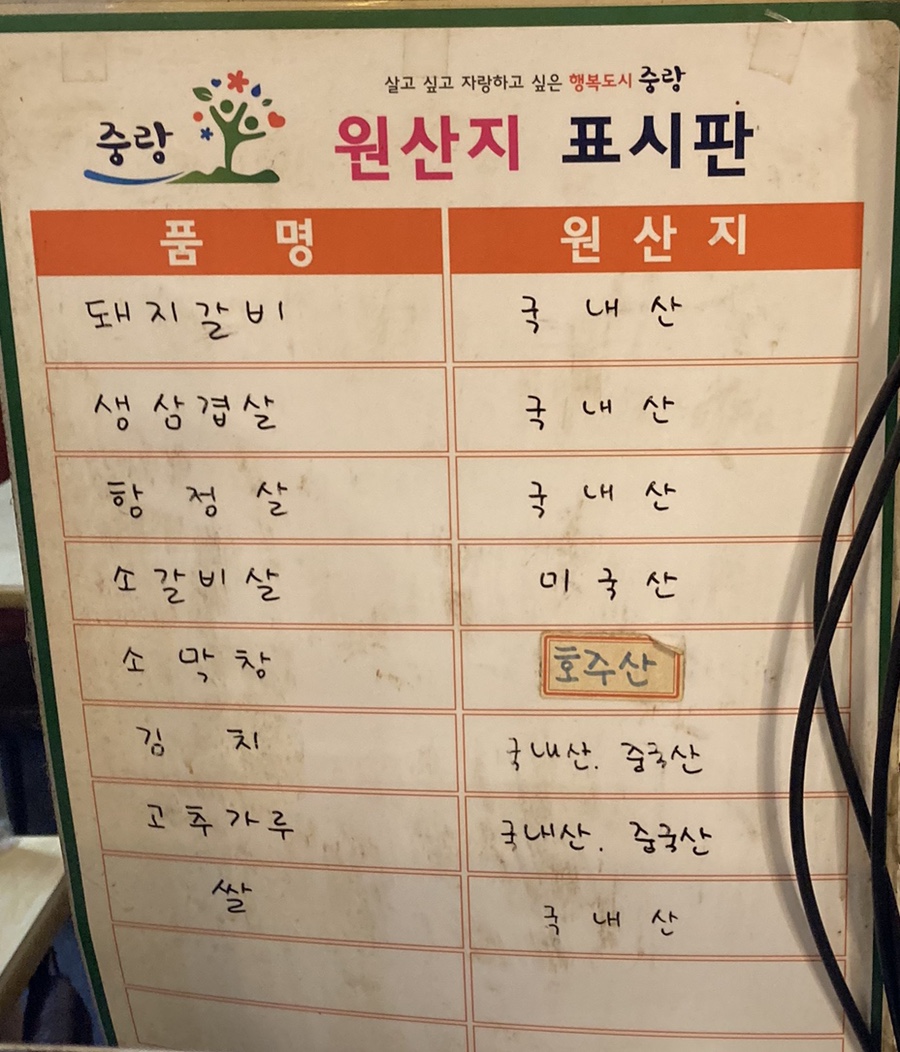 살고 싶고 자랑하고 싶은 행복도시 중랑
중랑 원산지 표시판
품 명 원 산 지
돼지갈비 국 내 산
생 삼겹살 국 내 산
항 정 살 국 내 산
소갈비살 미 국 산
소 막창 호주산
김 치 국내산. 중국산
고추가루 국내산. 중국산
쌀 국 내 산